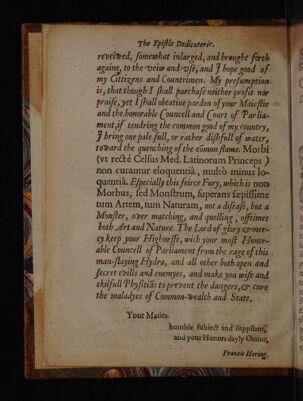 The Epistle Dedicatorie.
reveiwed, somewhat inlarged, and brought forth
againe, to the veiw and vse, and I hope good of
my Cittizens and Countrimen. My presumption
is, that though I shall purchase neither profit nor
praise, yet I shall obtaine pardon of your Maiestie
and the honorable Councell and Court of Parlia-
ment, if tendring the common good of my country,
I bring one pale full, or rather dishfull of water,
toward the quenching of the cōmon flame. Morbi
(vt rectè Celsus Med. Latinorum Princeps)
non curantur eloquentiâ, multò minus lo-
quentiâ. Especially this feirce Fury, which is non
Morbus, sed Monstrum, superans sæpissime
tum Artem, tum Naturam, not a disease, but a
Monster, over matching, and quelling, ofttimes
both Art and Nature. The Lord of glory & mer-
cy keep your Highnesse, with your most Honor-
able Councell of Parliament from the rage of this
man-slaying Hydra, and all other both open and
secret evills and enemyes, and make you wise and
skilfull Physitiās to prevent the dangers, & cure
the maladyes of Common-wealth and State.
Your Maties.
humble subiect and suppliant,
and your Honors dayly Orator,
Francis Hering.